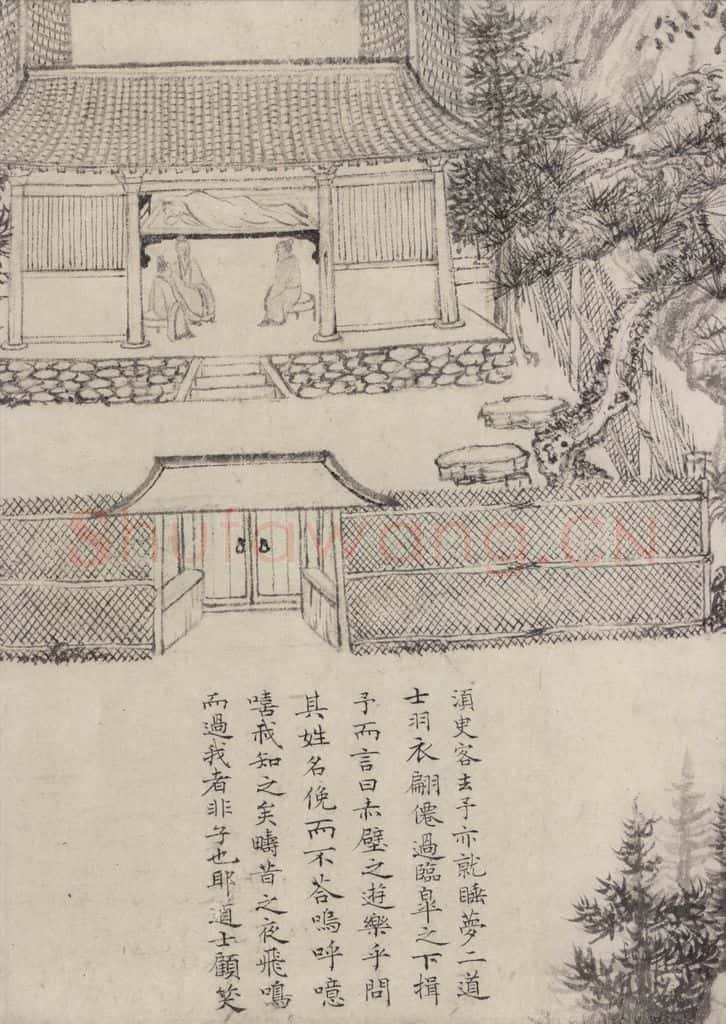 湏臾客去予亦就睡夢二道
士羽衣翩僊過臨皐之下揖
予而言曰赤壁之遊樂乎問
其姓名俛而不荅嗚呼噫
嘻我知之矣疇昔之夜飛鳴
而過我者非子也耶道士顧笑
Shufawang.CN